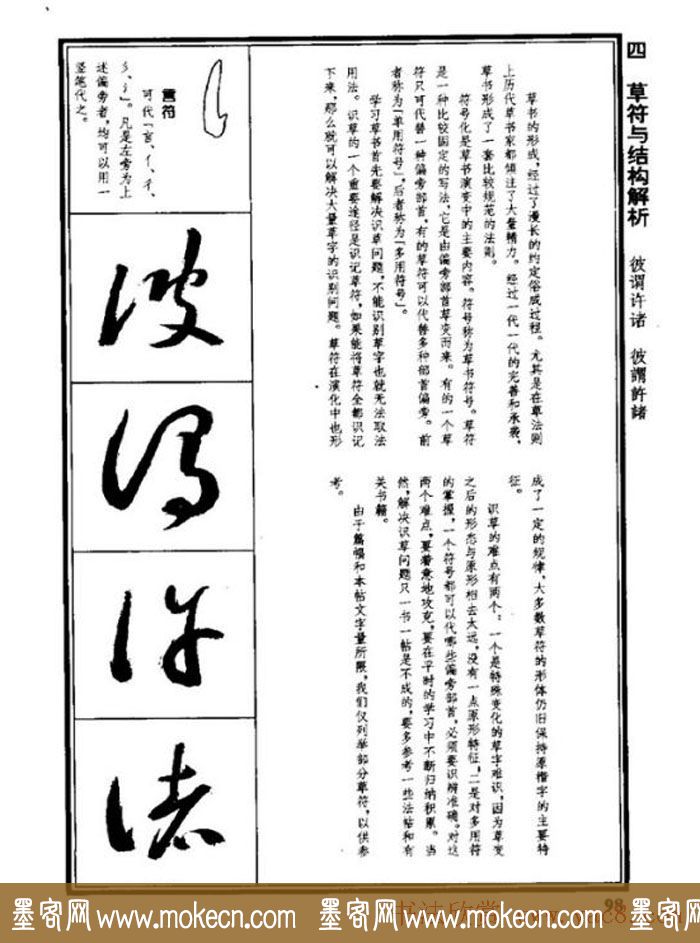 四　草符与结构解析　彼谓许诸　彼謂許諸
草书的形成，经过了漫长的约定俗成过程。尤其是在草法则
上历代草书家都倾注了大量精力。经过一代一代的完善和承袭，
草书形成了一套比较规范的法则。
符号化是草书演变中的主要内容。符号称为草书符号。草符
是一种比较固定的写法，它是由偏旁部首草变而来。有的一个草
符只可代替一种偏旁部首，有的草符可以代替多种部首偏旁。前
者称为「单用符号」，后者称为「多用符号」。
学习草书首先要解决识草问题，不能识别草字也就无法取法
用法。识草的一个重要途径是识记草符，如果能将草符全都识记
下来，那么就可以解决大量草字的识别问题。草符在演化中也形
成了一定的规律，大多数草符的形体仍旧保持原楷字的主要特
征。
识草的难点有两个：一个是特殊变化的草字难识，因为草变
之后的形态与原形相去太远，没有一点原形特征，二是对多用符
的掌握，一个符号都可以代哪些偏旁部首，必须要识辨准确。对这
两个难点，要着意地攻克，要在平时的学习中不断归纳积累。当
然，解决识草问题只一书一帖是不成的，要多参考一些法帖和有
关书籍。
由于篇幅和本帖文字量所限，我们仅列举部分草符，以供参
考。
言符
可代「言、亻、彳、
彡、氵」。凡是左旁为上
述偏旁者，均可以用一
竖笔代之。
彼
谓
许
诸
98
墨客网 www.mokecn.com　墨客网 www.mokecn.com